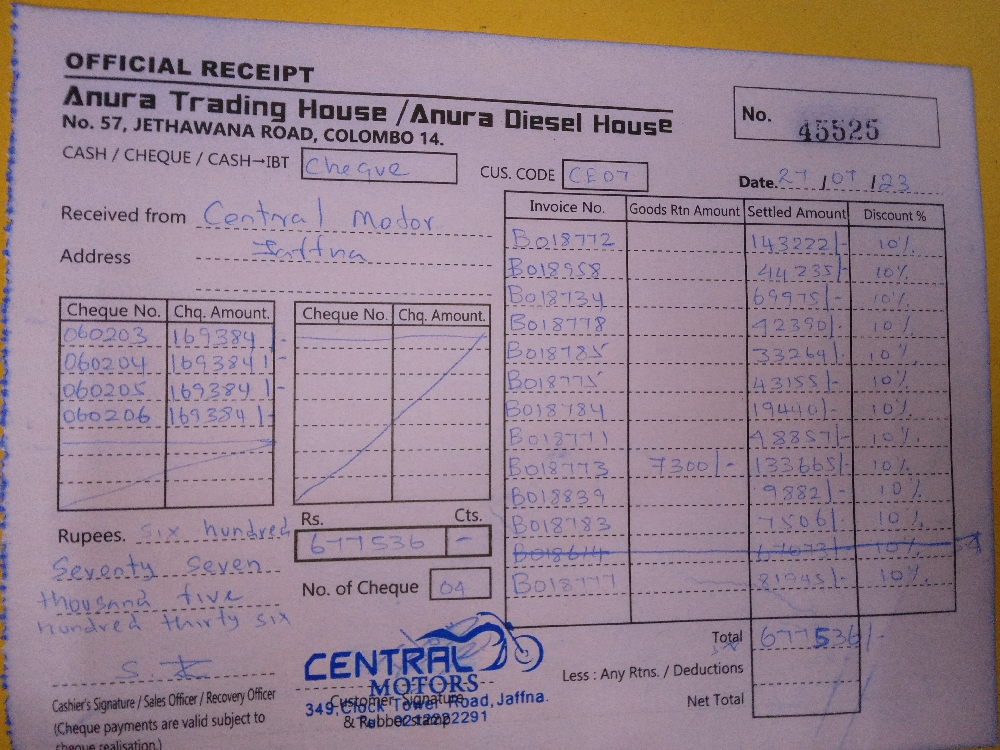 OFFICIAL RECEIPT
Anura Trading House /Anura Diesel House
No. 57, JETHAWANA ROAD, COLOMBO 14.
No. 45525
CASH / CHEQUE / CASH→IBT Cheque
CUS. CODE CE07
Date. 27 /07 /23
Received from Central Motor
Address Jaffna
Cheque No. Chq. Amount.
060203 169384/-
060204 169384/-
060205 169384/-
060206 169384/-
Cheque No. Chq. Amount.
Invoice No. Goods Rtn Amount Settled Amount Discount %
B018772 143222/- 10%
B018958 44235/- 10%
B018734 69975/- 10%
B018778 42390/- 10%
B018785 33264/- 10%
B018775 43155/- 10%
B018784 19440/- 10%
B018771 48857/- 10%
B018773 7300/- 133665/- 10%
B018839 9882/- 10%
B018783 7506/- 10%
10%
B018777 81945/- 10%
Rupees. six hundred
Seventy Seven
thousand five
hundred thirty six
Rs. Cts.
677536 -
No. of Cheque 04
Total 677536/-
Less : Any Rtns. / Deductions
Net Total
Cashier's Signature / Sales Officer / Recovery Officer
(Cheque payments are valid subject to
cheque realisation.)
CENTRAL
MOTORS
Customer Signature
349, Clock Tower Road, Jaffna.
& Rubber stamp
Tel: 0212222291